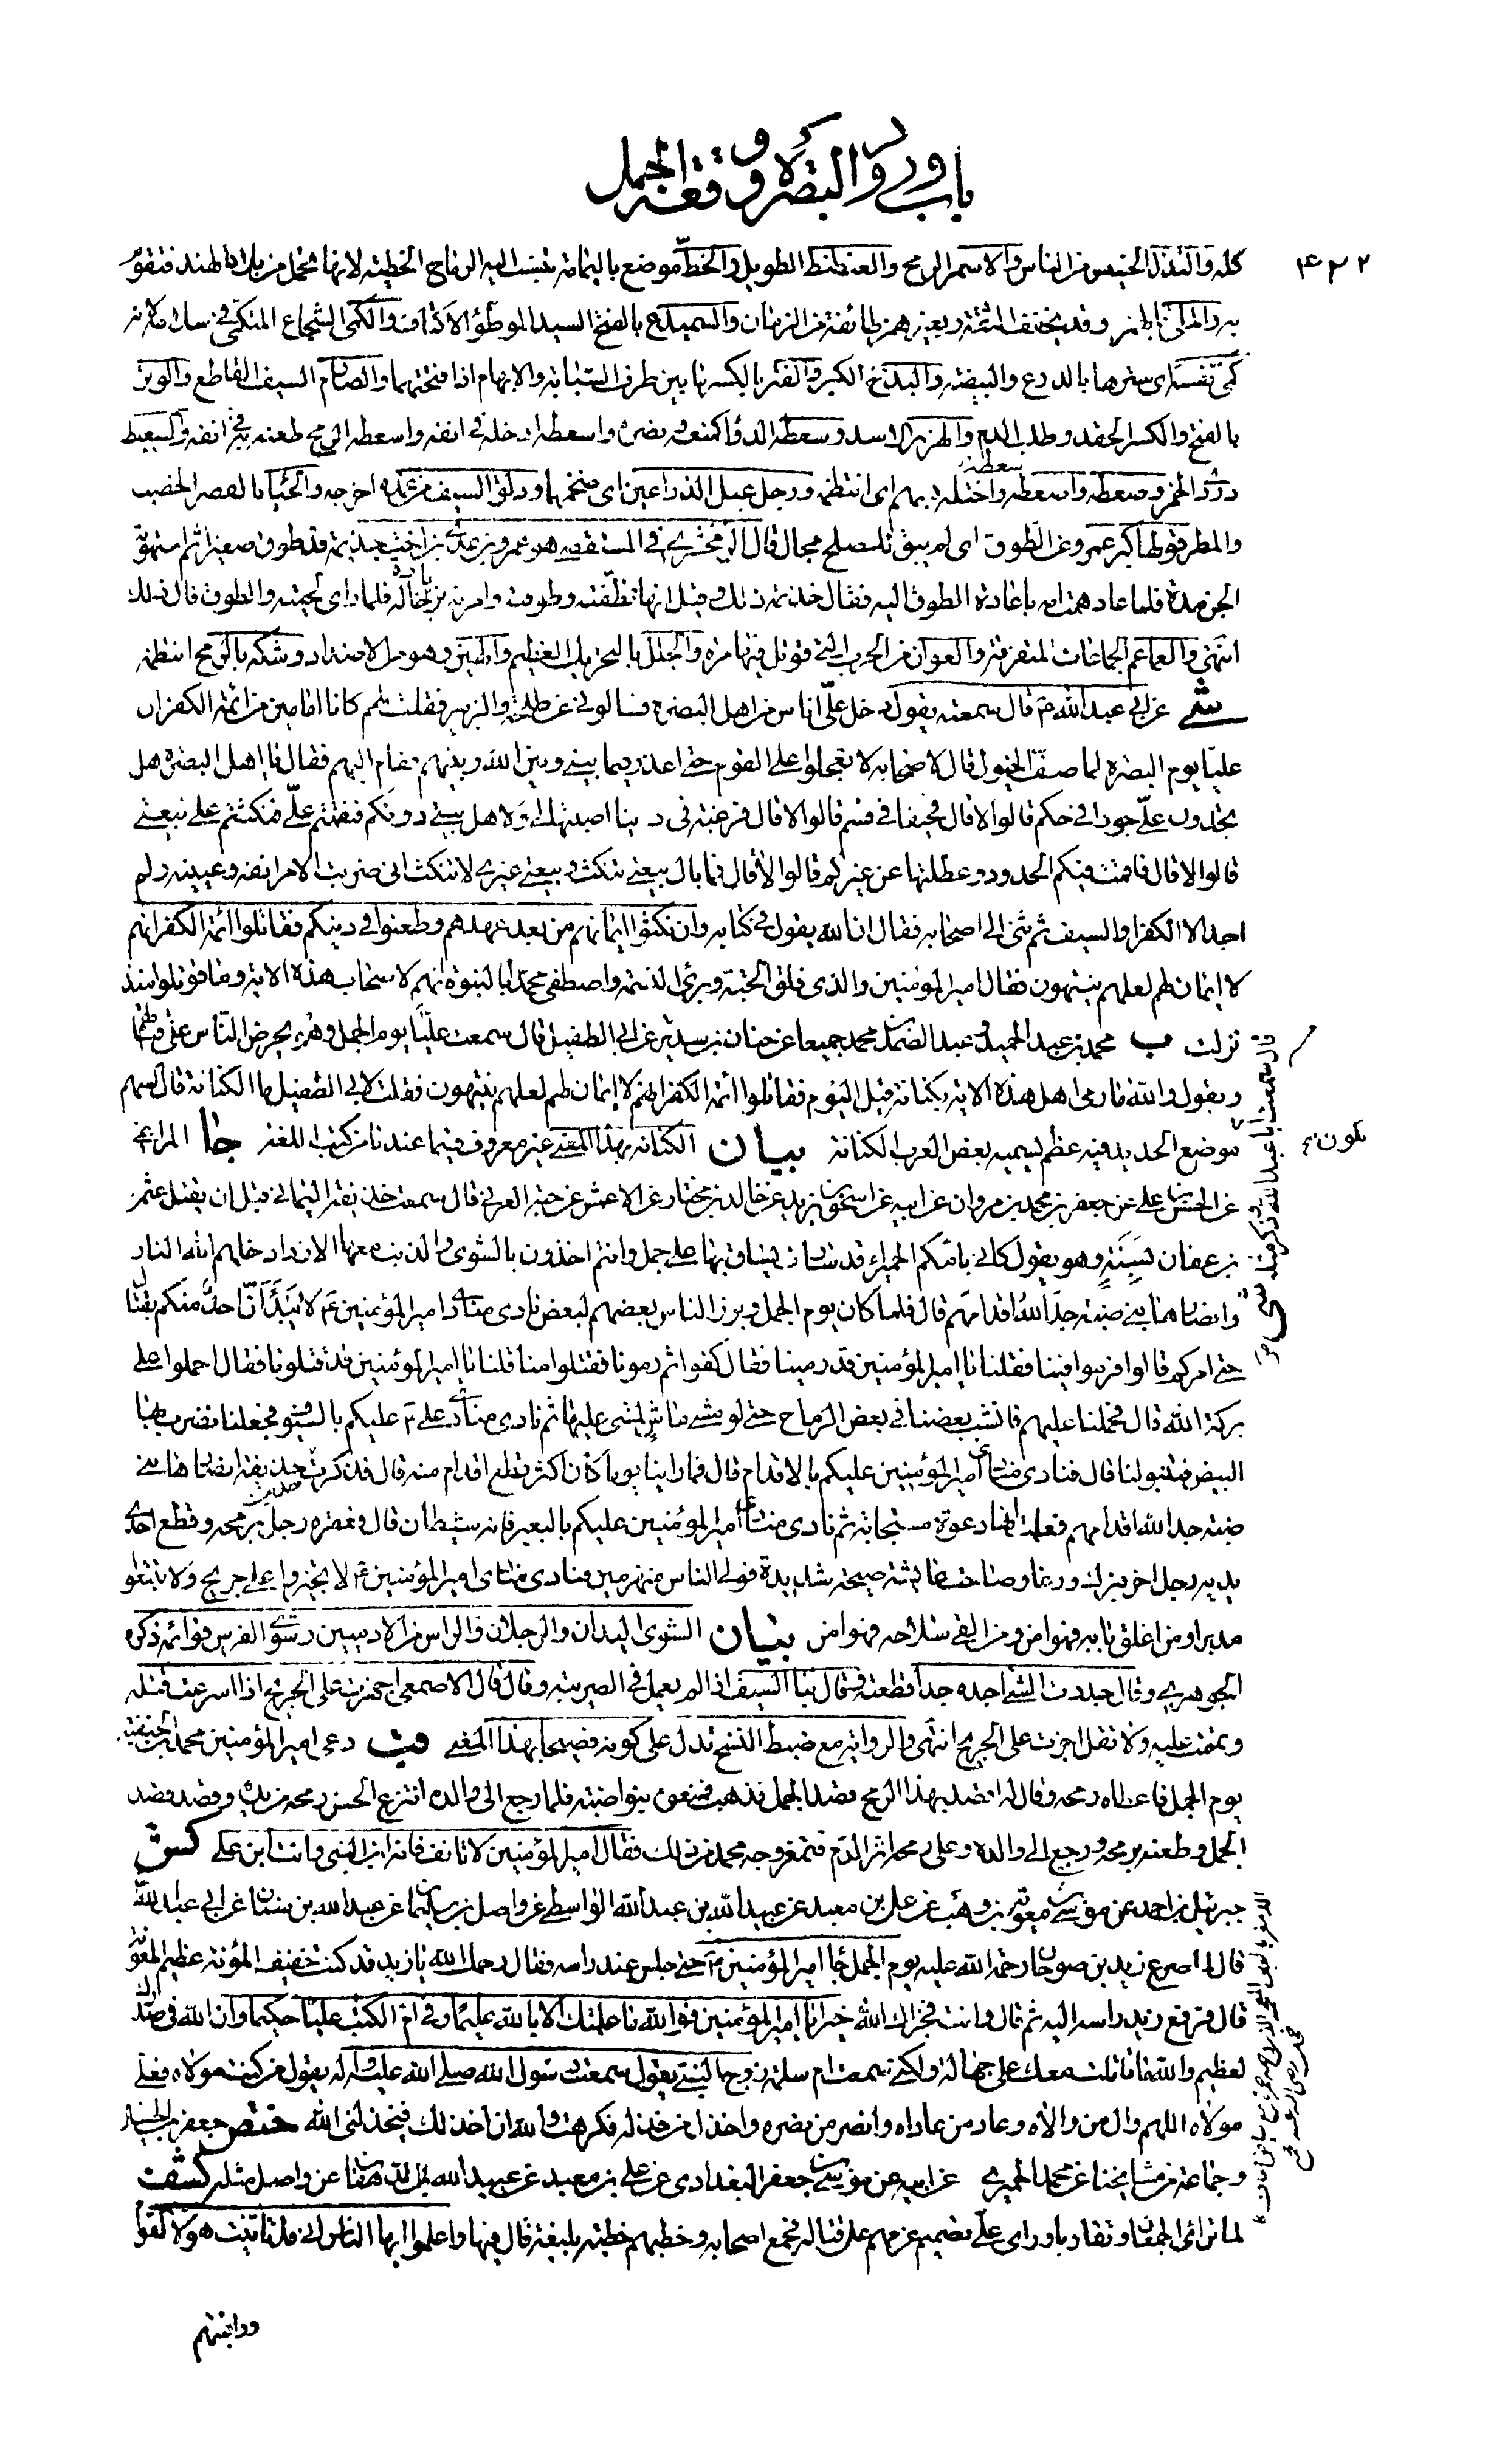 باب وروده البصرة ووقعة الجمل
٤٣٢
كله والنذل الخسيس من الناس والاسمر الرمح والعنطنط الطويل والخط موضع باليمامة تنسب اليه الرماح الخطية لانها تحمل من بلاد الهند فتقوم
به والمراق الخمر وقد يخفف الثقة ربعيهم طائفة من الزمان والسميدع بالفتح السيد الموطؤ الاكناف والكمى الشجاع المتكمى فى سلاحه لانه
كمى نفسه اى سترها بالدرع والبيضة والبذخ الكبر والفتر بالكسر ما بين طرف السبابة والابهام اذا فتحتهما والصارم السيف القاطع والوتر
بالفتح والكسر الحقد وطلب الدم والهزبر الاسد وسعطه الدواء كمنعه ونصره واسعطه ادخله فى انفه واسعطه الرمح طعنه به فى انفه والسعيط
دردى الخمر وصعطه واصعطه سعطه واختله بسهم اى انتظمه ورجل عبل الذراعين اى ضخمهما ودلق السيف من غمده اخرجه والحيا بالقصر الخصب
والمطر قولها كبر عمرو عن الطوق اى لم يبق للصلح مجال قال الزمخشرى فى المستقصى هو عمرو بن عدى بن اخت جذيمة قد طوق صغيرا ثم استهوته
الجن مدة فلما عاد همت امه باعادة الطوق اليه فقال جذيمة ذلك وقيل انها نظفته وطوقته وامرته بزيارة خاله فلما راى لحيته والطوق قال ذلك
انتهى والعماعم الجماعات المتفرقة والعوان من الحرب التى قوتل فيها مرة والجلل بالتحريك العظيم والهين وهو من الاضداد وشكه بالرمح انتظمه
شى عن ابى عبد الله ع قال سمعته يقول دخل على اناس من اهل البصرة فسالونى عن طلحة والزبير فقلت لهم كانا امامين من ائمة الكفر ان
عليا يوم البصرة لما صف الخيول قال لاصحابه لا تعجلوا على القوم حتى اعذر فيما بينى وبين الله وبينهم فقام اليهم فقال يا اهل البصرة هل
تجدون على جورا فى حكم قالوا لا قال فحيفا فى قسم قالوا لا قال فرغبة فى دنيا اصبتها لى ولاهل بيتى دونكم فنقمتم على فنكثتم على بيعتى
قالوا لا قال فاقمت فيكم الحدود وعطلتها عن غيركم قالوا لا قال فما بال بيعتى تنكث وبيعة غيرى لا تنكث انى ضربت الامر انفه وعينه ولم
اجد الا الكفر او السيف ثم ثنى الى اصحابه فقال ان الله يقول فى كتابه وان نكثوا ايمانهم من بعد عهدهم وطعنوا فى دينكم فقاتلوا ائمة الكفر انهم
لا ايمان لهم لعلهم ينتهون فقال امير المؤمنين والذى فلق الحبة وبرئ النسمة واصطفى محمدا بالنبوة انهم لاصحاب هذه الاية وما قوتلوا منذ
نزلت ب محمد بن عبد الحميد وعبد الصمد بن محمد جميعا عن حنان بن سدير
قال سمعت ابا عبد الله ع
عن ابى الطفيل قال سمعت عليا يوم الجمل وهو يحرض الناس على قتالهم
ويقول والله ما رمى اهل هذه الاية بكنانة قبل اليوم فقاتلوا ائمة الكفر انهم لا ايمان لهم لعلهم ينتهون فقلت لابى الطفيل ما الكنانة قال السهم
يكون
موضع الحديد فيه عظم تسميه بعض العرب الكنانة بيان الكنانة بهذا المعنى غير معروف فيما عندنا من كتب اللغة جا المراغى
عن الحسن بن على عن جعفر بن محمد بن مروان عن ابيه عن اسحق بن يزيد عن خالد بن مختار عن الاعمش عن حبة العرنى قال سمعت حذيفة اليمانى قبل ان يقتل عثمن
بن عفان بسنة وهو يقول كانى بامكم الحميراء قد سارت يساق بها على جمل وانتم اخذون بالشوى والذنب معها الازد ادخلهم الله النار
وانصارها بنى ضبة جد الله اقدامهم قال فلما كان يوم الجمل وبرز الناس بعضهم لبعض نادى منادى امير المؤمنين ع لا يبدأن احد منكم بقتال
حتى امركم قال فرموا فينا فقلنا يا امير المؤمنين قد رمينا فقال كفوا ثم رمونا فقتلوا منا قلنا يا امير المؤمنين قد قتلونا فقال احملوا على
بركة الله قال فحملنا عليهم فانشب بعضنا فى بعض الرماح حتى لو مشى ماش لمشى عليها ثم نادى منادى على ع عليكم بالسيوف فجعلنا نضرب بها
البيض فتنبو لنا قال فنادى منادى امير المؤمنين عليكم بالاقدام قال فما راينا يوما كان اكثر قطع اقدام منه قال فذكرت حديث حذيفة انصارها بنى
ضبة جد الله اقدامهم فعلمت انها دعوة مستجابة ثم نادى منادى امير المؤمنين عليكم بالبعير فانه شيطان قال فعقره رجل برمحه وقطع احدى
يديه رجل اخر فبرك ورغا وصاحت عايشة صيحة شديدة فولى الناس منهزمين فنادى منادى امير المؤمنين ع لا تجيزوا على جريح ولا تتبعوا
مدبرا ومن اغلق بابه فهو امن ومن القى سلاحه فهو امن بيان الشوى اليدان والرجلان والراس من الادميين وشوى الفرس قوائمه ذكره
الجوهرى وقال جددت الشئ اجده جدا قطعته وقال نبا السيف اذا لم يعمل فى الضريبة وقال قال الاصمعى اجهزت على الجريح اذا اسرعت قتله
وتممت عليه ولا تقل اجزت على الجريح انتهى والرواية مع ضبط النسخ تدل على كونه فصيحا بهذا المعنى قب دعى امير المؤمنين محمد بن الحنفية
يوم الجمل فاعطاه رمحه وقال له اقصد بهذا الرمح قصد الجمل فذهب فمنعوه بنو ضبة فلما رجع الى والده انتزع الحسن رمحه من يده وقصد قصد
الجمل وطعنه برمحه ورجع الى والده وعلى رمحه اثر الدم فتمغر وجه محمد من ذلك فقال امير المؤمنين لا تانف فانه ابن النبى وانت ابن على كش
جبرئيل بن احمد عن موسى بن معوية بن وهب عن على بن معبد عن عبيد الله بن عبد الله الواسطى عن واصل بن سليمان عن عبد الله بن سنان عن ابى عبد الله
قال لما صرع زيد بن صوحان رحمة الله عليه يوم الجمل جاء امير المؤمنين ع حتى جلس عند راسه فقال رحمك الله يا زيد قد كنت خفيف المؤنة عظيم المعونة
قال فرفع زيد راسه اليه ثم قال وانت فجزاك الله خيرا يا امير المؤمنين فوالله ما علمتك الا بالله عليما وفى ام الكتب عليا حكيما وان الله فى صدرك
لعظيم والله ما قاتلت معك على جهالة ولكنى سمعت ام سلمة زوج النبى يقول سمعت رسول الله صلى الله عليه واله يقول من كنت مولاه فعلى
مولاه اللهم وال من والاه وعاد من عاداه وانصر من نصره واخذل من خذله فكرهت والله ان اخذلك فيخذلنى الله ختص جعفر بن الحسين
وجماعة من مشايخنا عن محمد الحميرى عن ابيه عن موسى بن جعفر البغدادى عن على بن معبد عن عبيد الله بن الدهقان عن واصل مثله كشف
لما ترائى الجمعان وتقاربا وراى على تصميم عزمهم على قتاله فجمع اصحابه وخطبهم خطبة بليغة قال فيها واعلموا ايها الناس انى قد تانيت هؤلاء القوم
وراقبتهم